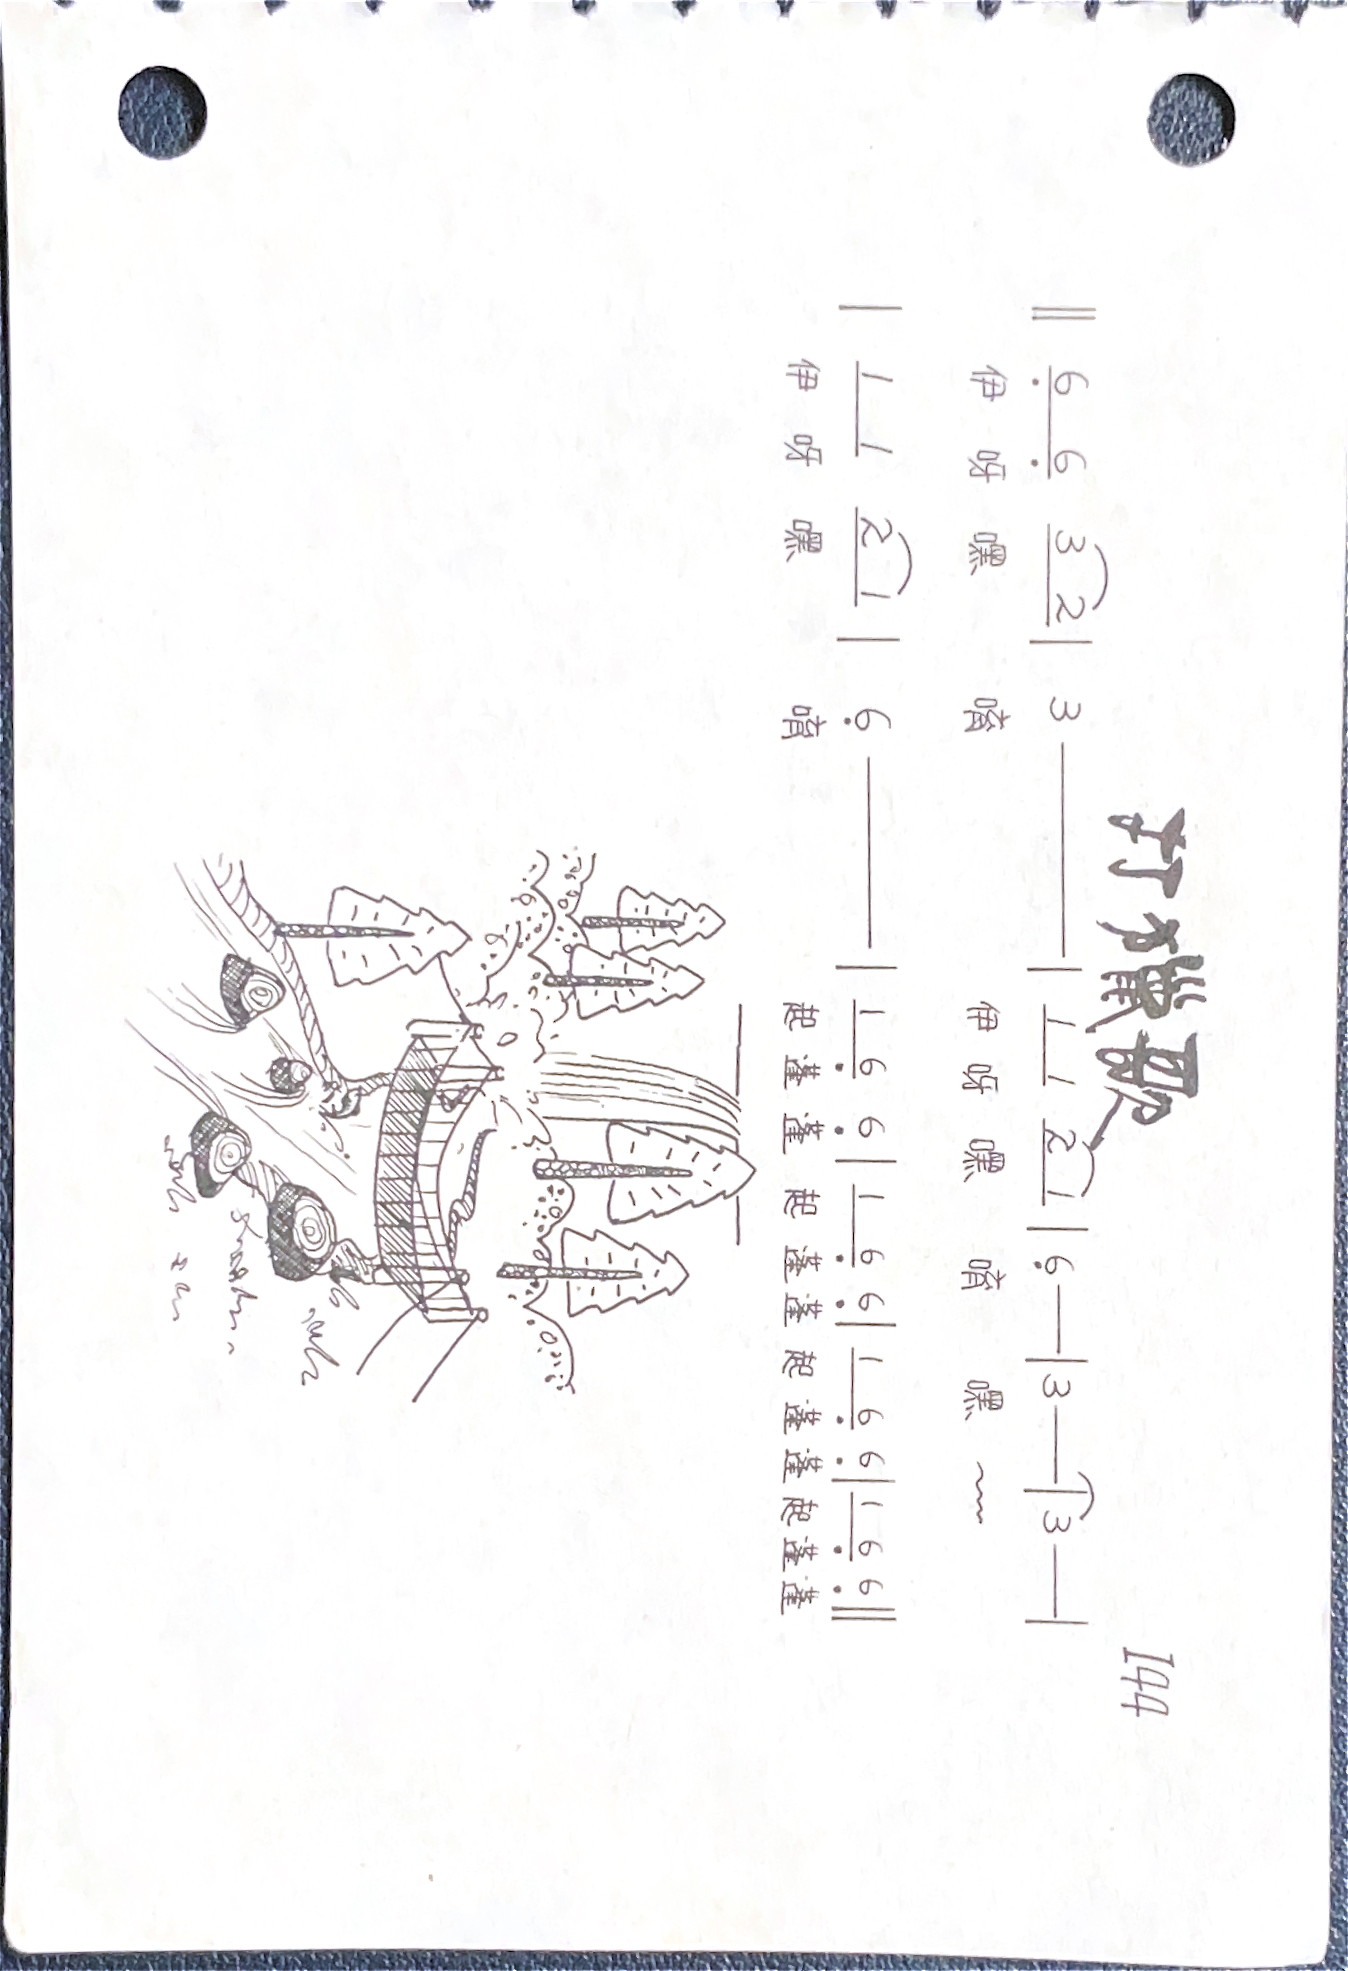 打獵歌
144
‖ 6̣ 6̣ 3 2 | 3 — | 1 1 2 1 | 6̣ — | 3 — | 3 — |
伊 呀 嘿 唷 伊 呀 嘿 唷 嘿 ~~
| 1 1 2 1 | 6̣ — | 1 6̣ 6̣ | 1 6̣ 6̣ | 1 6̣ 6̣ | 1 6̣ 6̣ ‖
伊 呀 嘿 唷 起 蓬 蓬 起 蓬 蓬 起 蓬 蓬 起 蓬 蓬